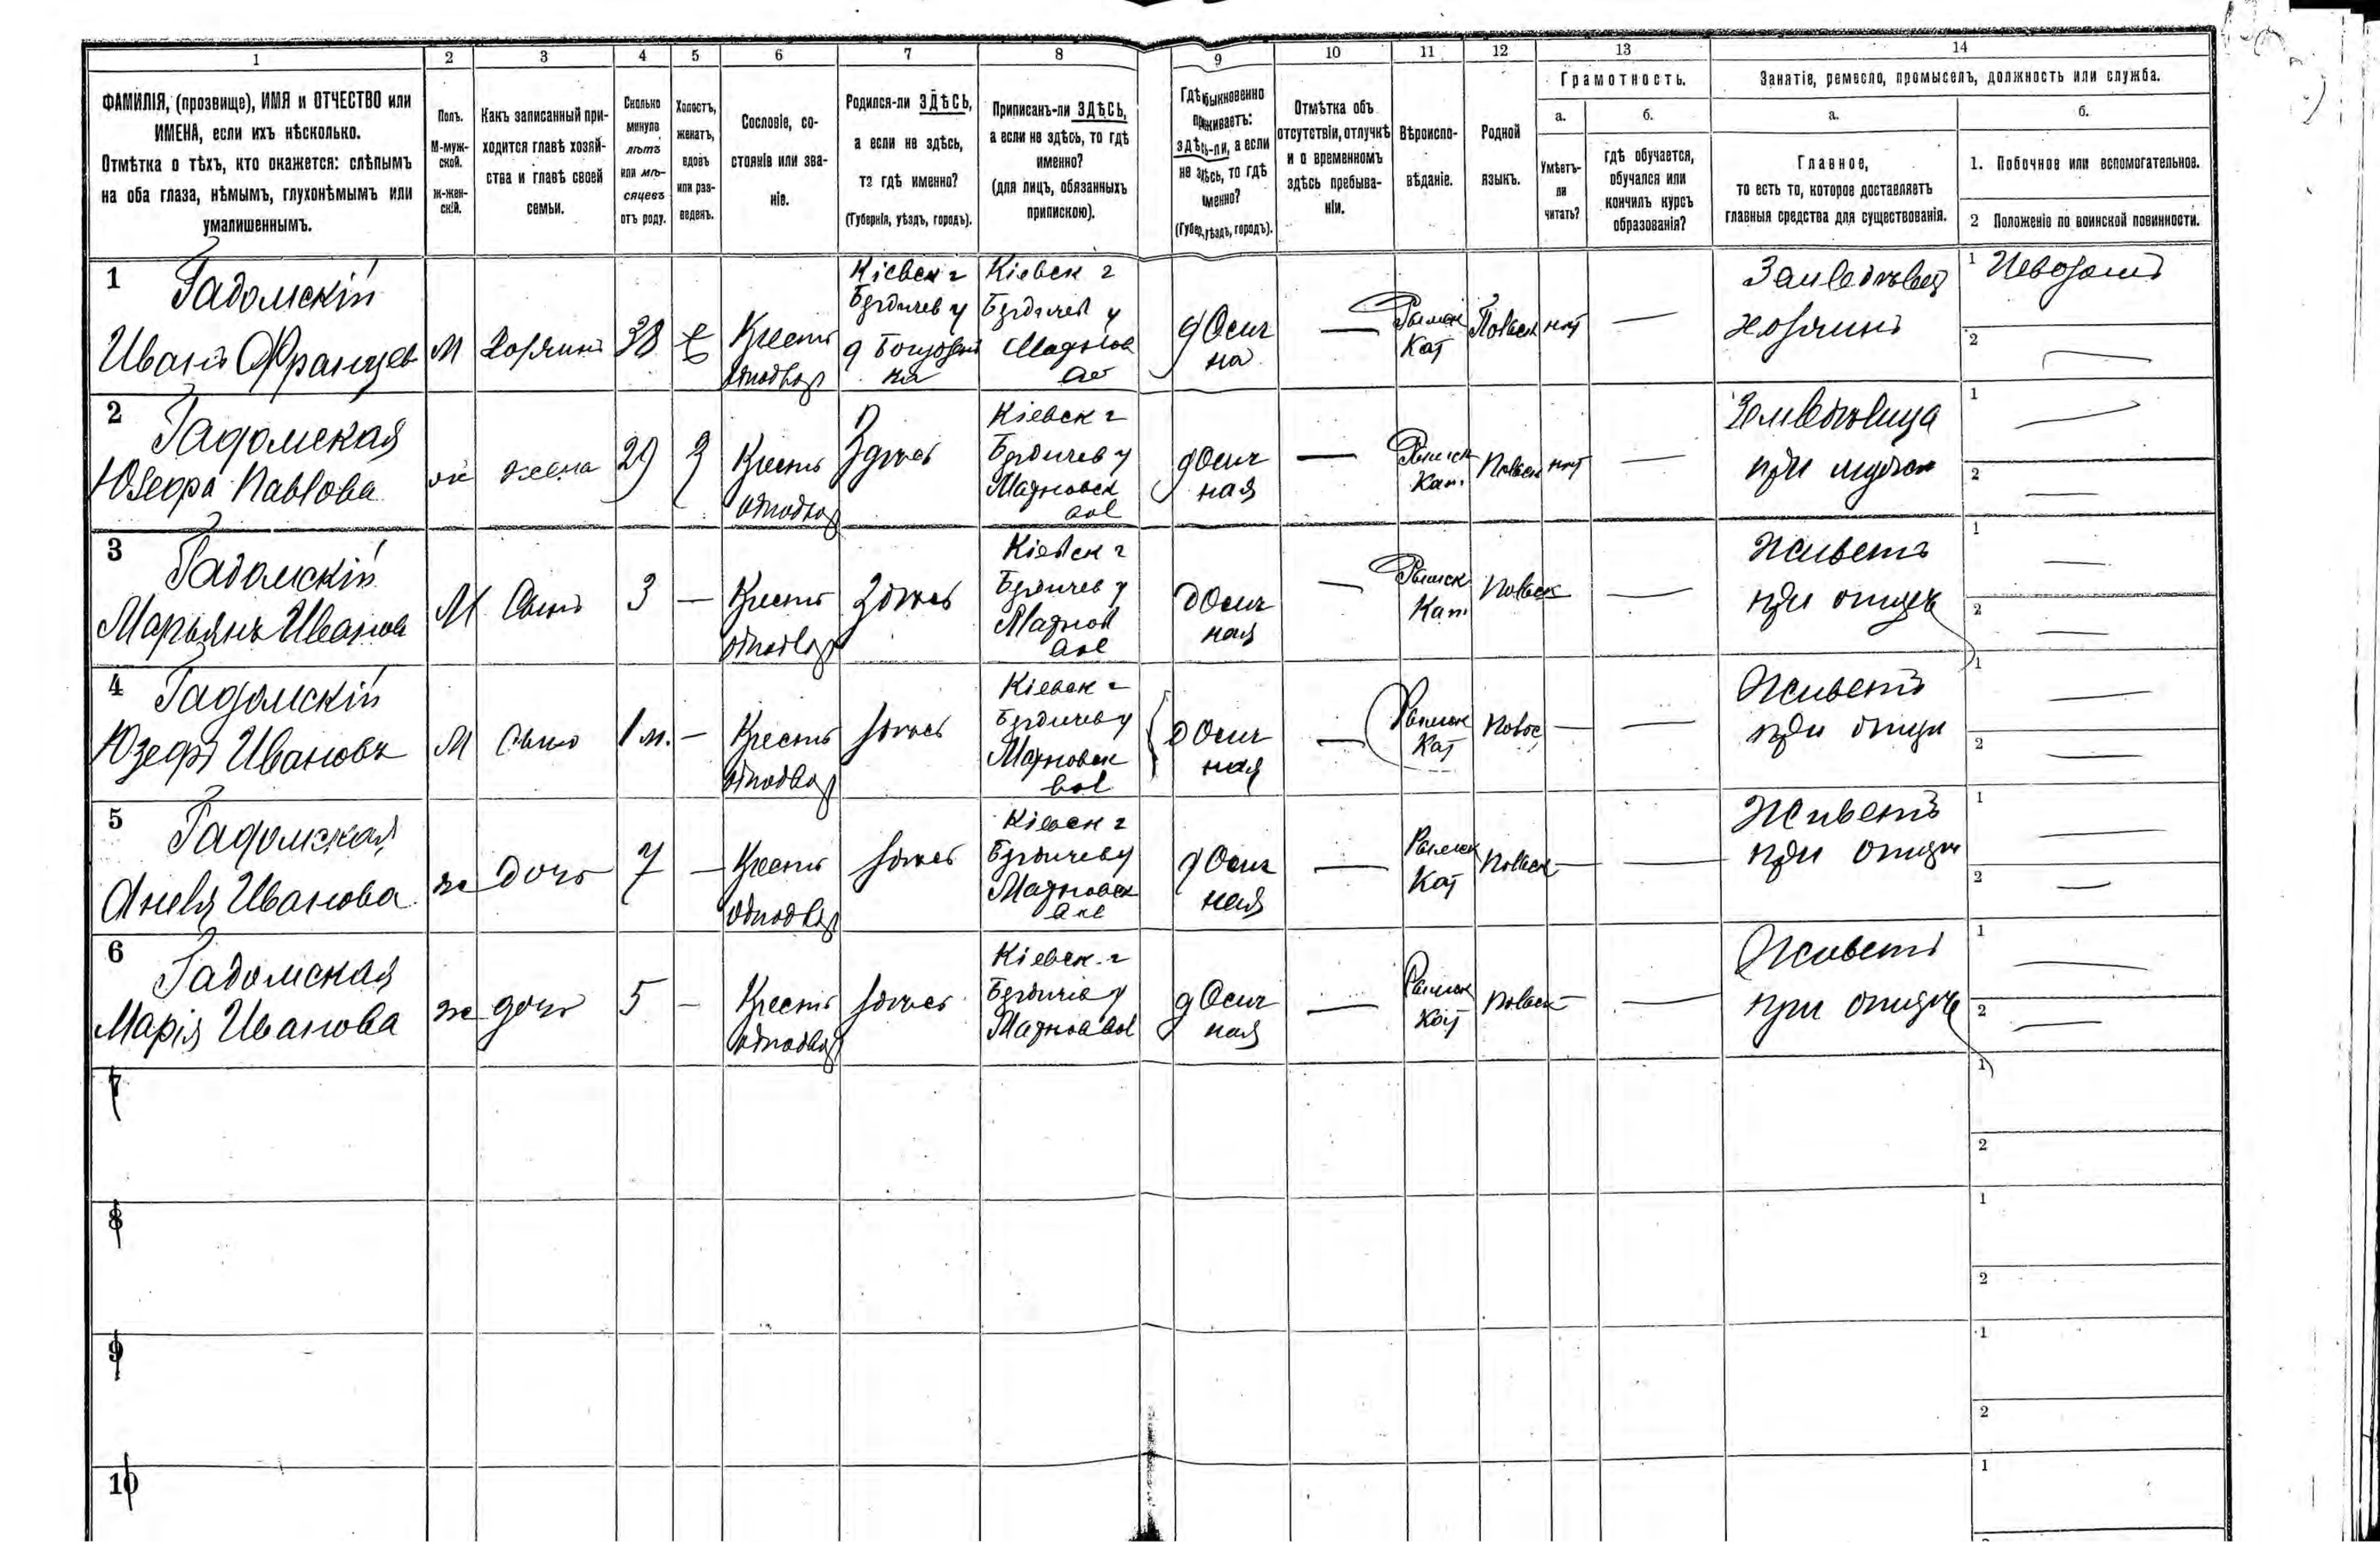 1 2 3 4 5 6 7 8 9 10 11 12 13 14
ФАМИЛІЯ, (прозвище), ИМЯ и ОТЧЕСТВО или
ИМЕНА, если ихъ нѣсколько.
Отмѣтка о тѣхъ, кто окажется: слѣпымъ
на оба глаза, нѣмымъ, глухонѣмымъ или
умалишеннымъ.
Полъ.
М-муж-
ской.
Ж-жен-
скій.
Какъ записанный при-
ходится главѣ хозяй-
ства и главѣ своей
семьи.
Сколько
минуло
лѣтъ
или мѣ-
сяцевъ
отъ роду.
Холостъ,
женатъ,
вдовъ
или раз-
веденъ.
Сословіе, со-
стояніе или зва-
ніе.
Родился-ли ЗДѢСЬ,
а если не здѣсь,
то гдѣ именно?
(Губернія, уѣздъ, городъ).
Приписанъ-ли ЗДѢСЬ,
а если не здѣсь, то гдѣ
именно?
(для лицъ, обязанныхъ
припискою).
Гдѣ обыкновенно
проживаетъ:
здѣсь-ли, а если
не здѣсь, то гдѣ
именно?
(Губер., уѣздъ, городъ).
Отмѣтка объ
отсутствіи, отлучкѣ
и о временномъ
здѣсь пребыва-
ніи.
Вѣроиспо-
вѣданіе.
Родной
языкъ.
Грамотность.
а.
Умѣетъ-
ли
читать?
б.
гдѣ обучается,
обучался или
кончилъ курсъ
образованія?
Занятіе, ремесло, промыселъ, должность или служба.
а.
Главное,
то есть то, которое доставляетъ
главныя средства для существованія.
б.
1. Побочное или вспомогательное.
2 Положеніе по воинской повинности.
1 Гадомскій
Иванъ Францев
М
Хозяинъ
38
Крест
однодвор
Кіевск г
Бердичев у
д
Кіевск г
Бердичев у
д Осич
на
Римск
Кат
Польск
нѣт
хозяинъ
1
2
2 Гадомская
Юзефа Павлова
ж
жена
29
З
Крест
однодвор
Здѣсь
Кіевск г
Бердичев у
Махновск
вол
д Осич
ная
Римск
Кат.
Польск
нѣт
при мужѣ
1
2
3 Гадомскій
Марьянъ Иванов
М
Сынъ
3
Крест
однодвор
Здѣсь
Кіевск г
Бердичев у
Махнов
вол
д Осич
ная
Римск
Кат
Польск
Живетъ
при отцѣ
1
2
4 Гадомскій
Юзефъ Ивановъ
М
Сынъ
1 м.
Крест
однодвор
здѣсь
Кіевск г
Бердичев у
Махновск
вол
д Осич
ная
Римск
Кат
Живетъ
при отцѣ
1
2
5 Гадомская
Анеля Иванова
ж
дочь
7
Крест
однодвор
здѣсь
Кіевск г
Бердичев у
Махновск
вол
д Осич
ная
Римск
Кат
Польск
Живетъ
при отцѣ
1
2
6 Гадомская
Марія Иванова
ж
дочь
5
Крест
однодвор
здѣсь
Кіевск г
Бердичев у
Махнов вол
д Осич
ная
Римск
Кат
Польск
Живетъ
при отцѣ
1
2
7
1
2
8
1
2
9
1
2
10
1